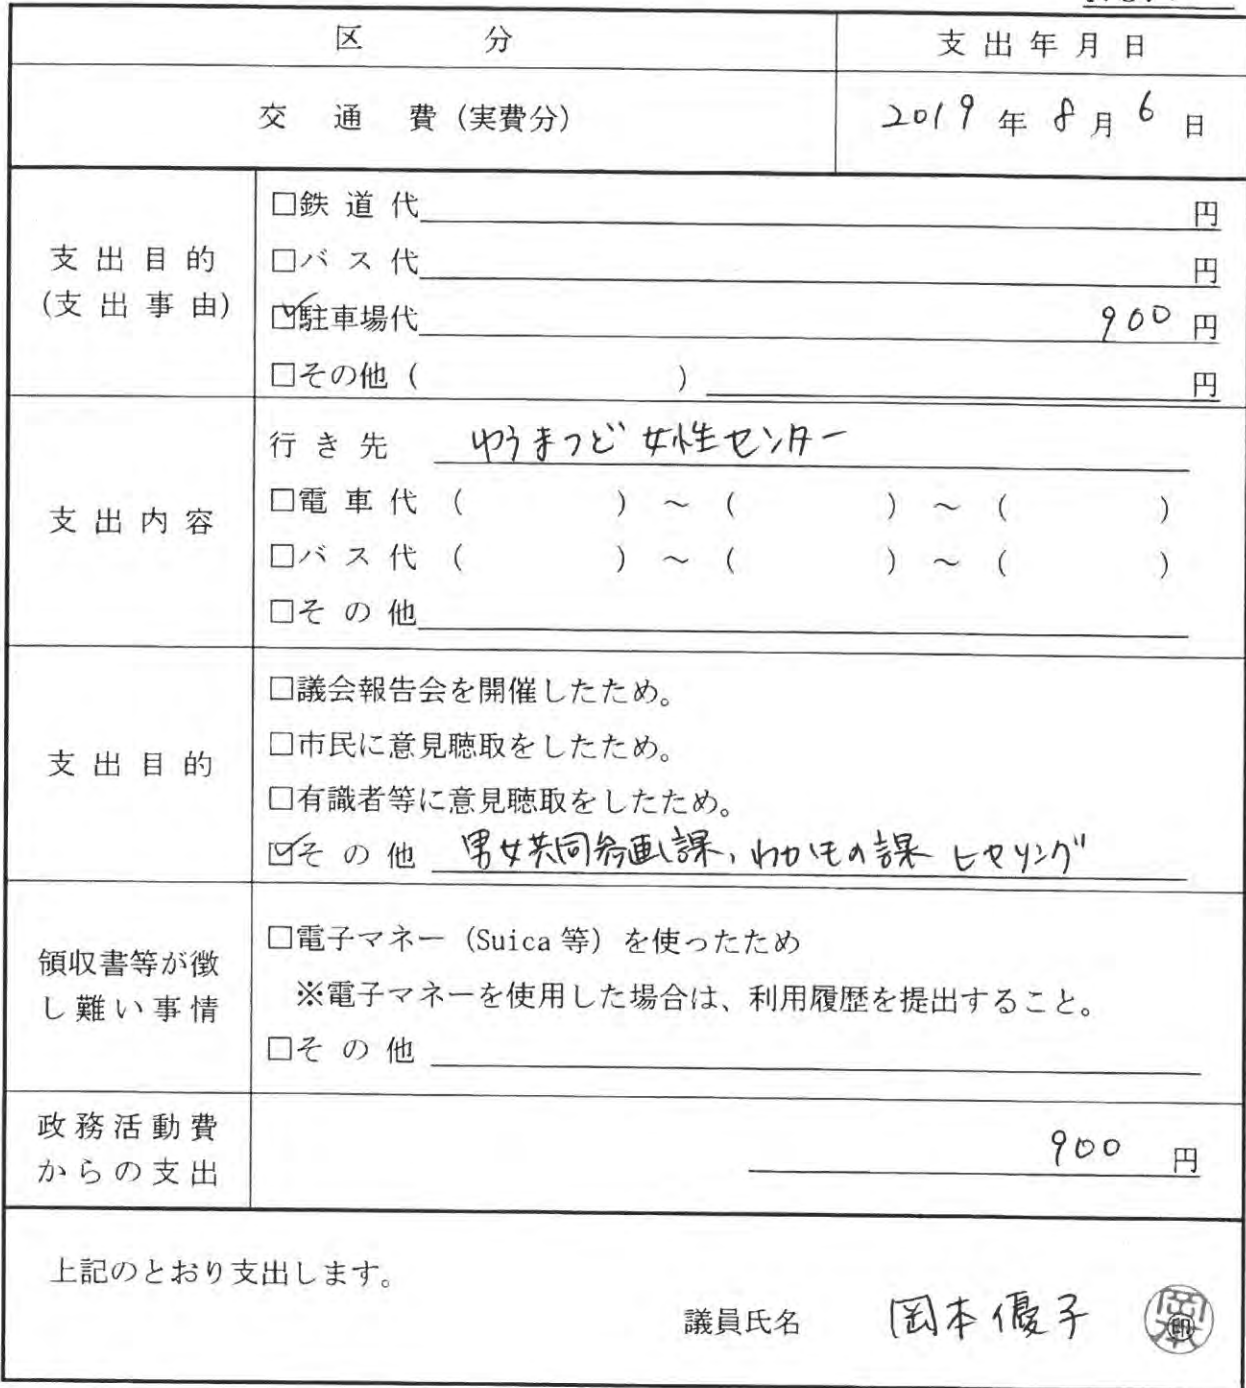 区 分
支出年月日
交 通 費 (実費分)
2019 年 8 月 6 日
支出目的
(支出事由)
□鉄道代 円
□バス代 円
☑駐車場代 900 円
□その他 ( ) 円
支出内容
行き先 ゆうまつど 女性センター
□電車代 ( ) ～ ( ) ～ ( )
□バス代 ( ) ～ ( ) ～ ( )
□その他
支出目的
□議会報告会を開催したため。
□市民に意見聴取をしたため。
□有識者等に意見聴取をしたため。
☑その他 男女共同参画課、わかもの課 ヒヤリング
領収書等が徴
し難い事情
□電子マネー (Suica 等) を使ったため
※電子マネーを使用した場合は、利用履歴を提出すること。
□その他
政務活動費
からの支出
900 円
上記のとおり支出します。
議員氏名 岡本優子
岡本
印